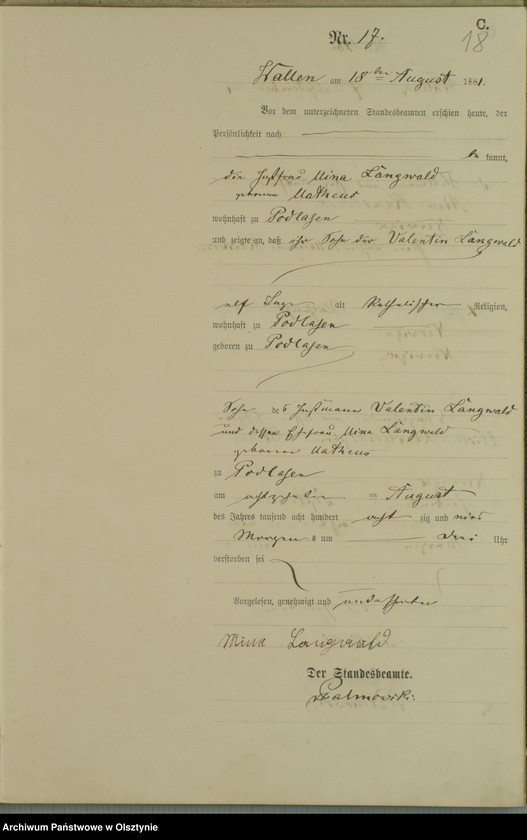 C.
18
Nr. 17.
Wallen am 18ten August 1881.
Vor dem unterzeichneten Standesbeamten erschien heute, der
Persönlichkeit nach
be kannt,
die Instfrau Mina Langwald
geborene Matheus
wohnhaft zu Podlasen
und zeigte an, daß ihr Sohn der Valentin Langwald
elf Tage alt Katholischer Religion,
wohnhaft zu Podlasen
geboren zu Podlasen
Sohn des Instmann Valentin Langwald
und dessen Ehefrau Mina Langwald
geborene Matheus
zu Podlasen
am achtzehnten August
des Jahres tausend acht hundert acht zig und eins
Morgens um drei Uhr
verstorben sei
Vorgelesen, genehmigt und unterschrieben
Mina Langwald
Der Standesbeamte.
Palmowski.
Archiwum Państwowe w Olsztynie